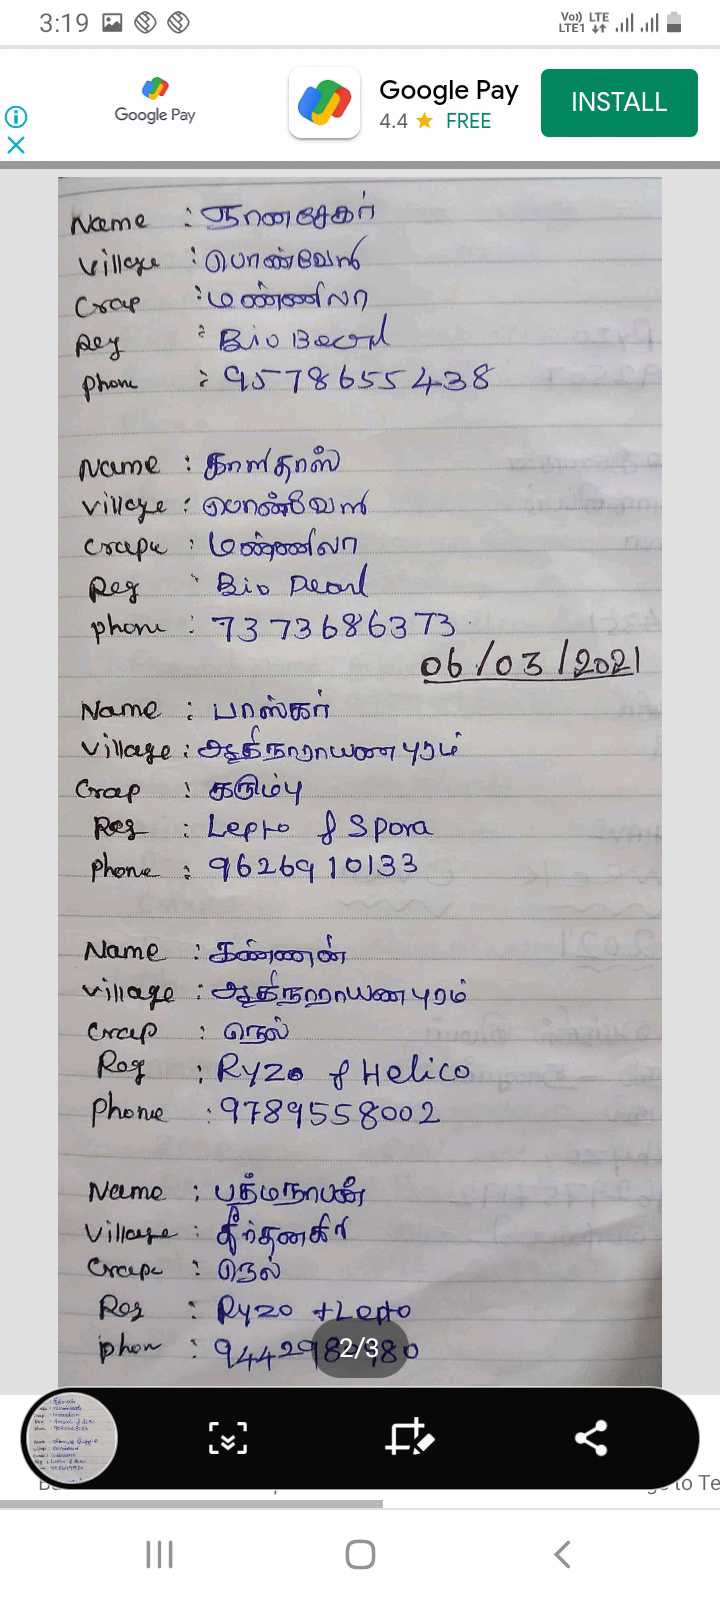 3:19
Vo)) LTE
LTE1
Google Pay
Google Pay
4.4 ★ FREE
INSTALL
Name : ஞானசேகர்
village : பொன்வேலி
Crop : மண்ணிலா
Reg : Bio Bearl
phone : 9578655438
Name : காளிதாஸ்
village : பொன்வேலி
Crope : மண்ணிலா
Reg : Bio Pearl
phone : 7373686373
06/03/2021
Name : பாஸ்கர்
village : ஆதிநாராயணபுரம்
Crop : கரும்பு
Reg : Lepto & Spora
phone : 9626910133
Name : கண்ணன்
village : ஆதிநாராயணபுரம்
Crop : நெல்
Reg : Ryzo & Helico
Phone : 9789558002
Name : பத்மநாபன்
Village : தீர்தனகிரி
Crope : நெல்
Reg : Ryzo + Lepto
phon :
2/3
to Te